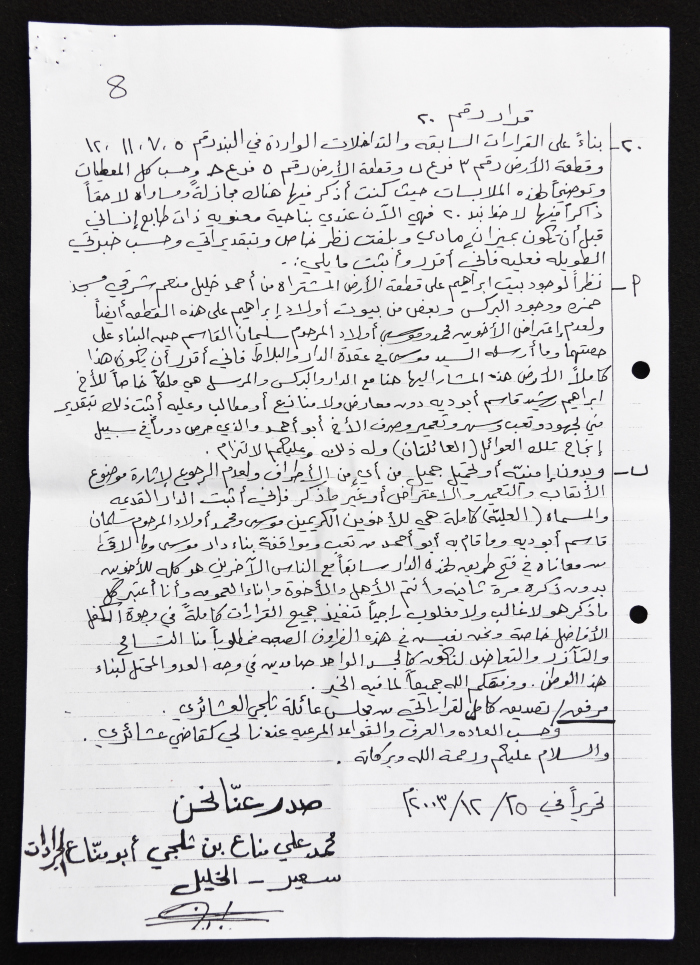 8
قرار رقم ٢٠
٢٠- بناءً على القرارات السابقه والتداخلات الواردة في البند رقم ٥، ٧، ١١، ١٢
وقطعة الأرض رقم ٣ فرع ب وقطعة الأرض رقم ٥ فرع وحسب كل المعطيات
وتوضيحاً لهذه الملابسات حيث كنت أذكر فيها هناك مجازلةً ومساراة لاحقاً
ذاكراً فيها لاحظ بند ٢٠ فهي الآن عندي بناحية معنويه ذات طابع إنساني
قبل أن تكون بميزان مادي وبلفت نظر خاص وبتقديراتي وحسب خبرتي
الطويله فعليه فإني أقرر وأثبت ما يلي:-
أ- نظراً لوجود بيت ابراهيم على قطعة الأرض المشتراة من أحمد خليل منعم شرقي مسجد
حمزه ووجود البركس وبعض من بيوت أولاد إبراهيم على هذه القطعه أيضاً
ولعدم إعتراض الأخوين محمد وموسى أولاد المرحوم سلمان القاسم حين البناء على
حصتهما وما أرسله السيد موسى في عقدة الدار والبلاط فإني أقرر أن يكون هذا
كاملاً الأرض هذه المشار اليها هنا مع الدار والبركس والمرسل هي ملكاً خاصاً للأخ
ابراهيم رشيد قاسم أبوديه دون معارض ولا منازع أو مطالب وعليه أثبت ذلك بتقدير
مني لجهود وتعب وسهر وتعمير وصرف الأخ أبو أحمد والذي حرص دوماً في سبيل
إنجاح تلك العوائل (العائلتان) وله ذلك وعليكم الالتزام.
ب- وبدون إمنيّه أو تحميل جميل من أي من الأطراف ولعدم الرجوع لإثارة موضوع
الأتعاب والتعمير والاعتراض أو غير ما ذكر فإني أثبت الدار القديمه
والمسماه (العليّه) كاملة هي للأخوين الكريمين موسى ومحمد أولاد المرحوم سلمان
قاسم أبوديه وما قام به أبو أحمد من تعب وموافقة بناء دار موسى وما لاقى
من معاناه في فتح طريق لهذه الدار سابقاً مع الناس الآخرين هو كله للأخوين
بدون ذكره مرة ثانيه وأنتم الأهل والأخوة وابناء العمومه وأنا أعتبر كل
ما ذكر هو لا غالب ولا مغلوب راجياً تنفيذ جميع القرارات كاملةً في وجوة الكفل
الأفاضل خاصة ونحن نعيش في هذه الظروف الصعبه فمطلوباً منا التسامح
والتآزر والتعاضد لنكون كالجسد الواحد صامدين في وجه العدو المحتل لبناء
هذا الوطن. ووفقكم الله جميعاً لما فيه الخير.
مرفق/ تصديق كامل لقراراتي من مجلس عائلة ثلجي العشائري.
وحسب العاده والعرف والقواعد المرعيه عندنا لي كقاضي عشائري.
والسلام عليكم ورحمة الله وبركاته.
تحريراً في ٢٥/ ١٢/ ٢٠٠٣م
صدر عنّا نحن
محمد علي مناع بن ثلجي أبو منّاع الجرادات
سعير - الخليل